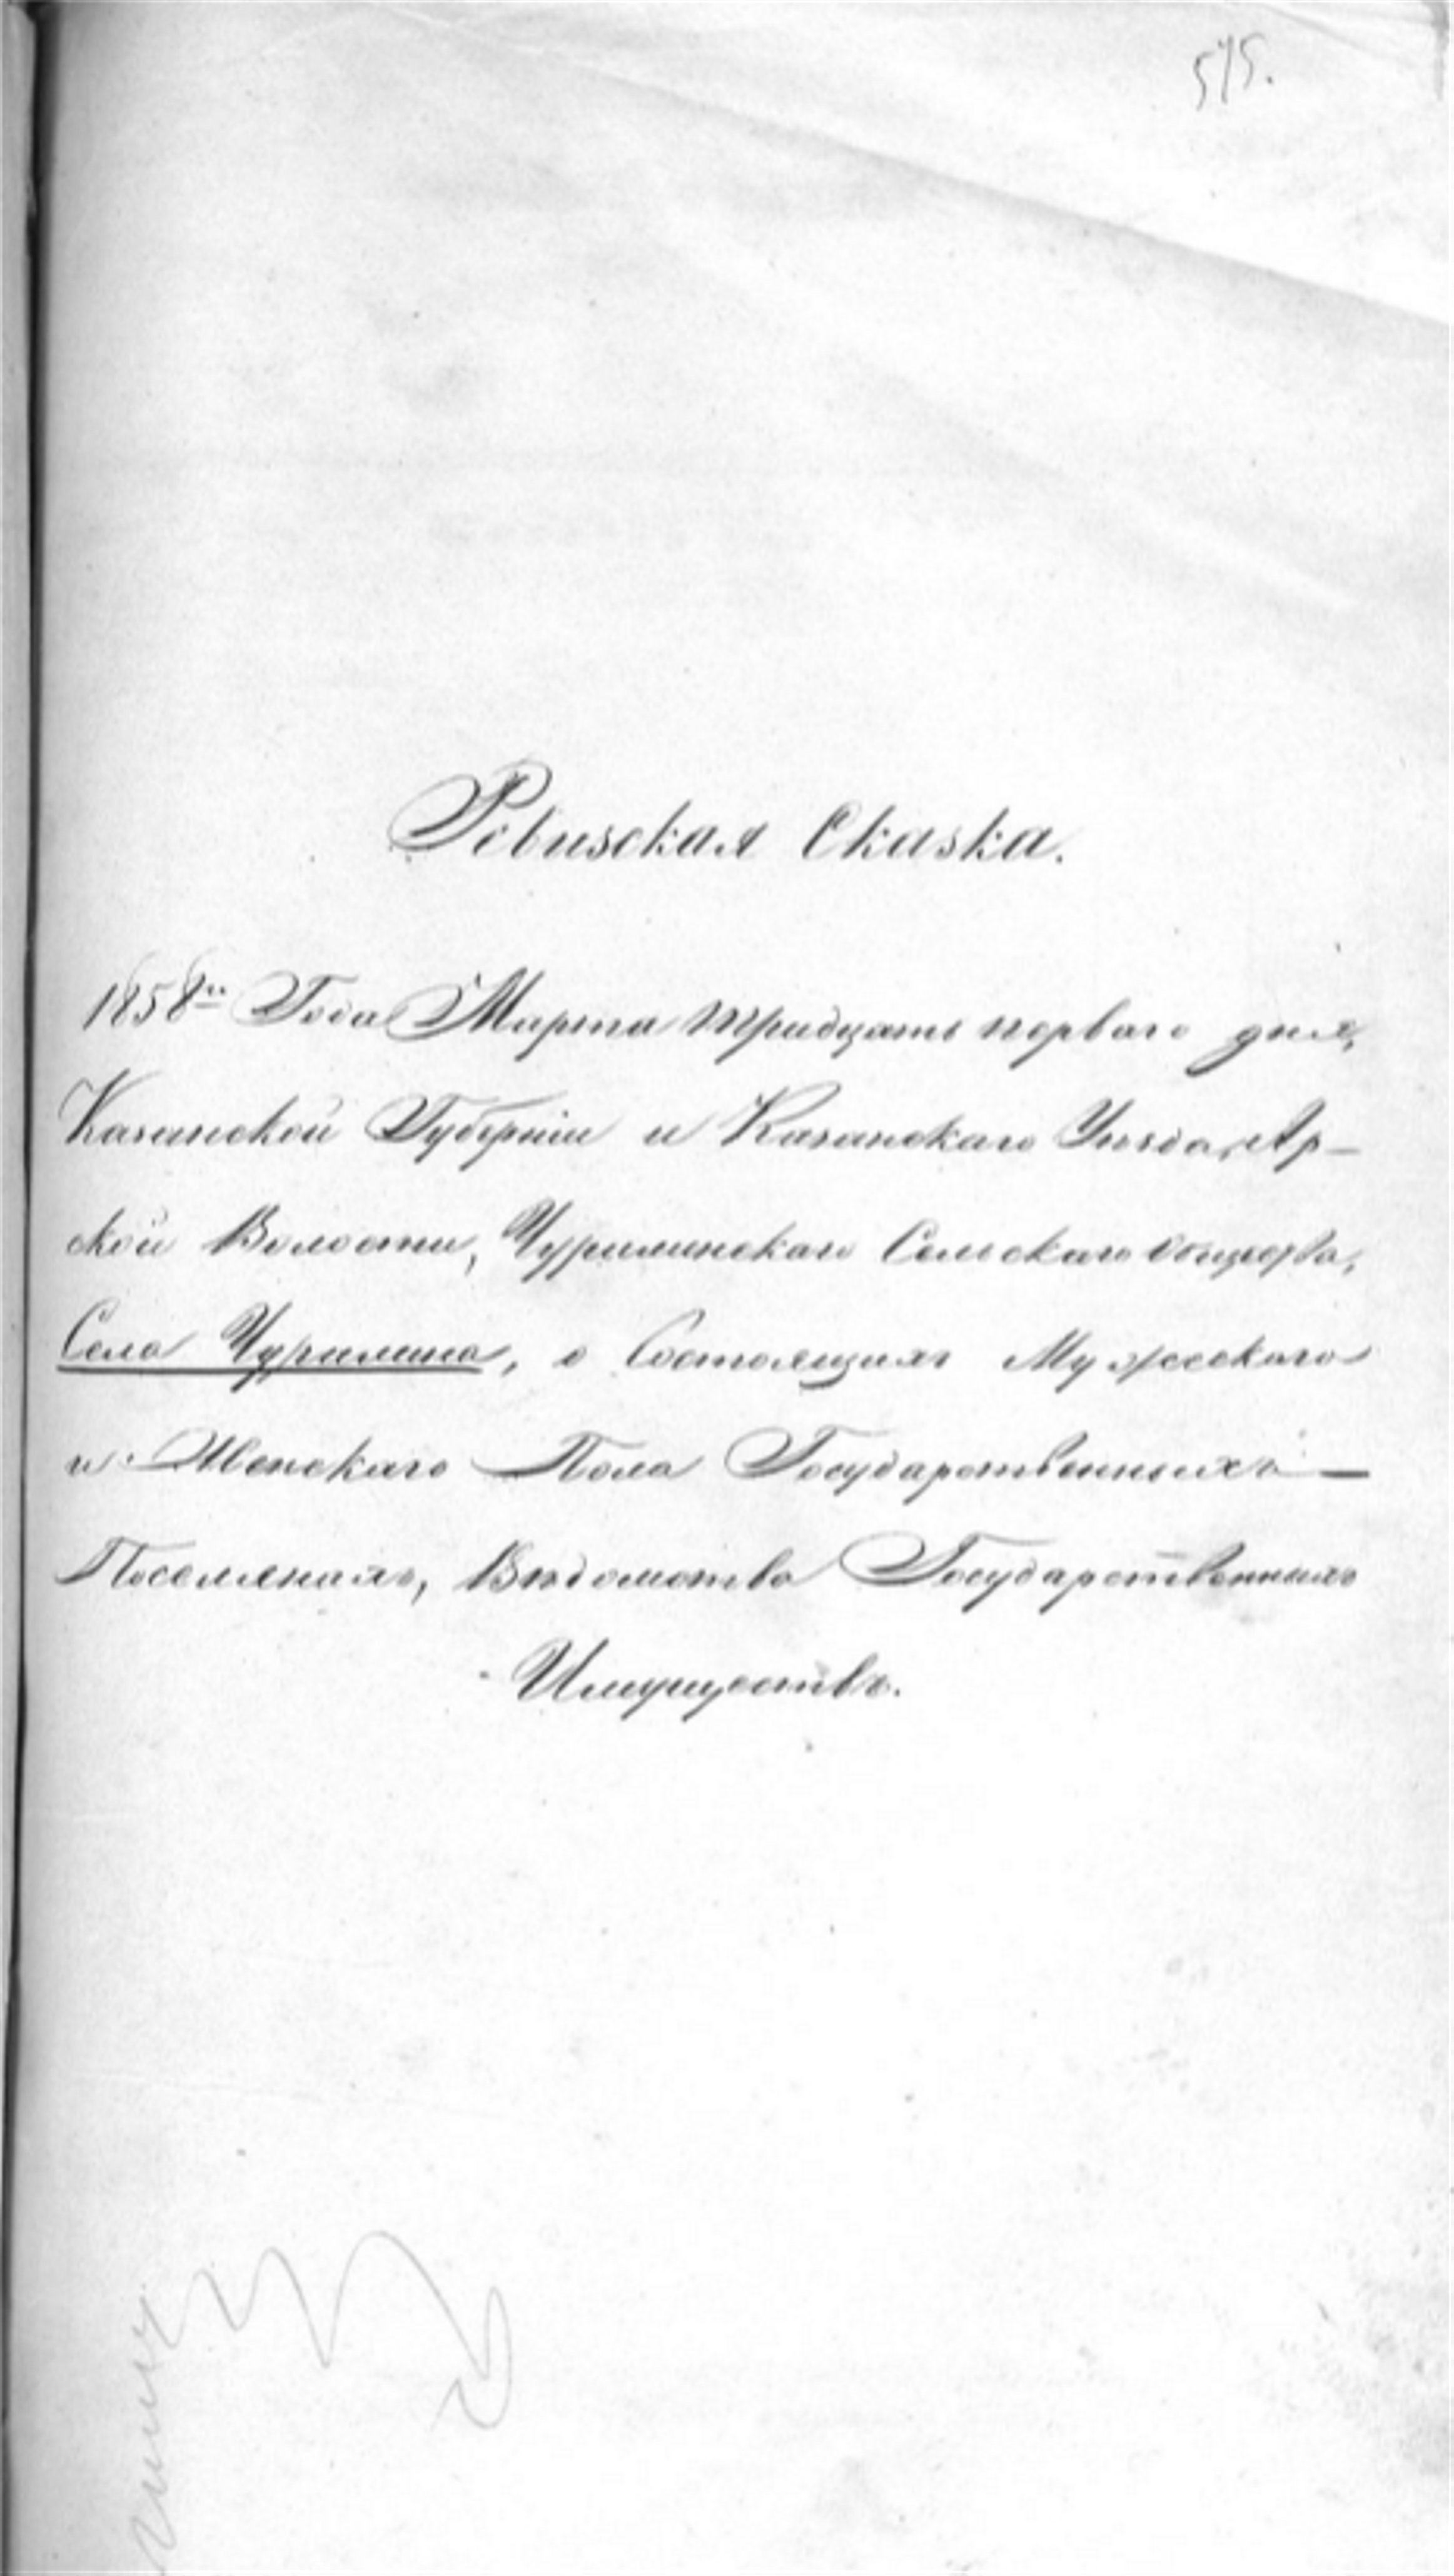 515.
Ревизская Сказка.
1858го Года Марта тридцать перваго дня,
Казанской Губерніи и Казанскаго Уѣзда, Ар-
ской Волости, Чурилинскаго Сельскаго общества,
Села Чурилина, о Состоящихъ Мужескаго
и Женскаго Пола Государственныхъ
Поселянахъ, Вѣдомства Государственныхъ
Имуществъ.